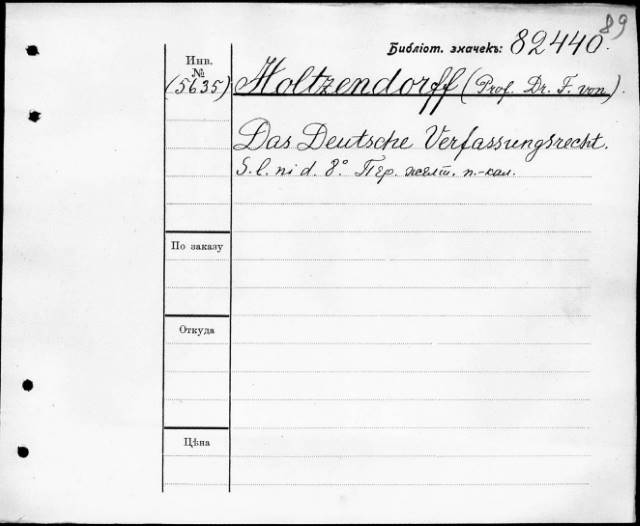 89
Библіот. значекъ: 82440.
Инв.
№
(5635) Holtzendorff (Prof. Dr. F. von).
Das Deutsche Verfassungsrecht.
S. l. ni d. 8° Пер. желт. п.-кал.
По заказу
Откуда
Цѣна